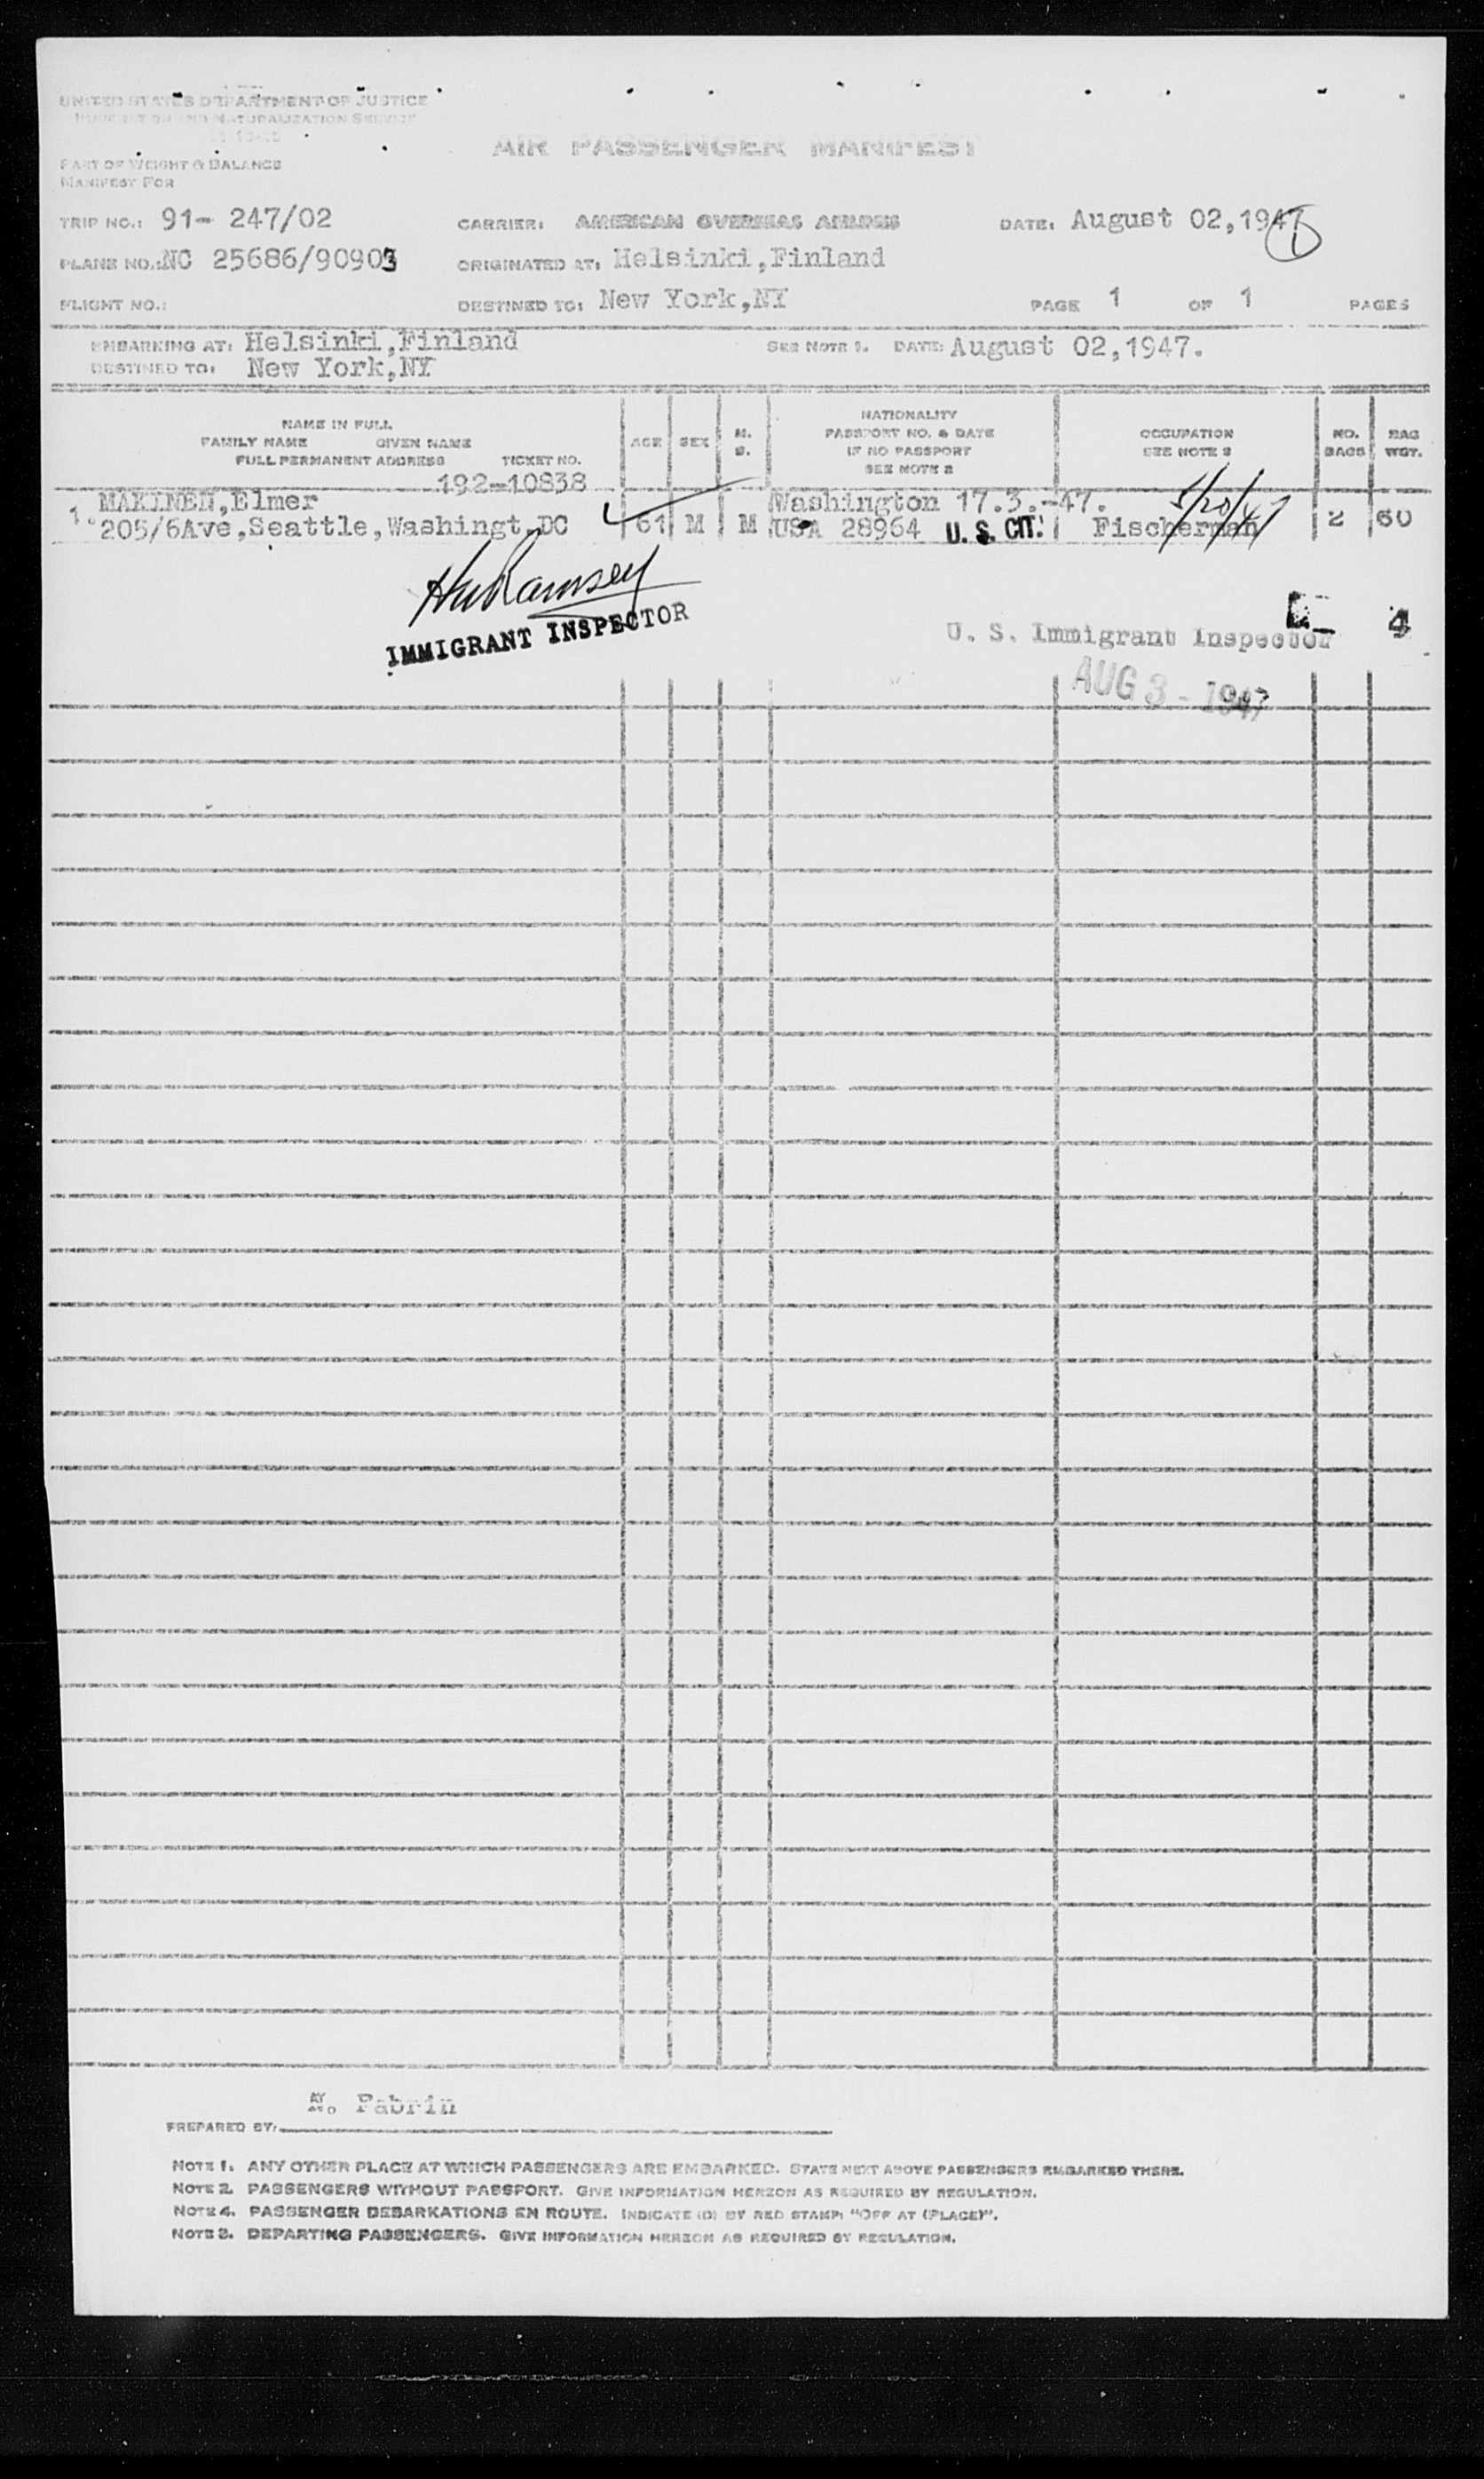 UNITED STATES DEPARTMENT OF JUSTICE
IMMIGRATION AND NATURALIZATION SERVICE
AIR PASSENGER MANIFEST
PART OF WEIGHT & BALANCE
MANIFEST FOR
TRIP NO.: 91- 247/02 CARRIER: AMERICAN OVERSEAS AIRLINES DATE: August 02,1947
PLANE NO.: NC 25686/90903 ORIGINATED AT: Helsinki,Finland 1
FLIGHT NO.: DESTINED TO: New York,NY PAGE 1 OF 1 PAGES
EMBARKING AT: Helsinki,Finland SEE NOTE 1. DATE: August 02,1947.
DESTINED TO: New York,NY
NAME IN FULL
FAMILY NAME GIVEN NAME
FULL PERMANENT ADDRESS TICKET NO.
AGE SEX M. S.
NATIONALITY
PASSPORT NO. & DATE
IF NO PASSPORT
SEE NOTE 2
OCCUPATION
SEE NOTE 3
NO. BAGS
BAG WGT.
192-10838
MAKINEN,Elmer Washington 17.3.-47. 5/20/47
1. 205/6Ave,Seattle,Washingt.DC 61 M M USA 28964 U. S. CIT. Fischerman 2 60
HW Ramsey
IMMIGRANT INSPECTOR
U. S. Immigrant Inspector 4
AUG 3 - 1947
PREPARED BY: N. Fabrin
NOTE 1. ANY OTHER PLACE AT WHICH PASSENGERS ARE EMBARKED. STATE NEXT ABOVE PASSENGERS EMBARKED THERE.
NOTE 2. PASSENGERS WITHOUT PASSPORT. GIVE INFORMATION HEREON AS REQUIRED BY REGULATION.
NOTE 4. PASSENGER DEBARKATIONS EN ROUTE. INDICATE (D) BY RED STAMP: "OFF AT (PLACE)".
NOTE 3. DEPARTING PASSENGERS. GIVE INFORMATION HEREON AS REQUIRED BY REGULATION.